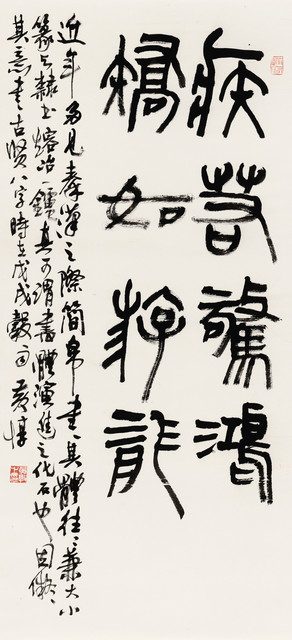 疾若驚鴻
矯如游龍
近年多見秦漢之際簡帛書、其體往〻兼大小
篆與隸書熔冶一鍾真可謂書體演進之化石也因
其意書古賢八字時在戊戌穀雨黃惇